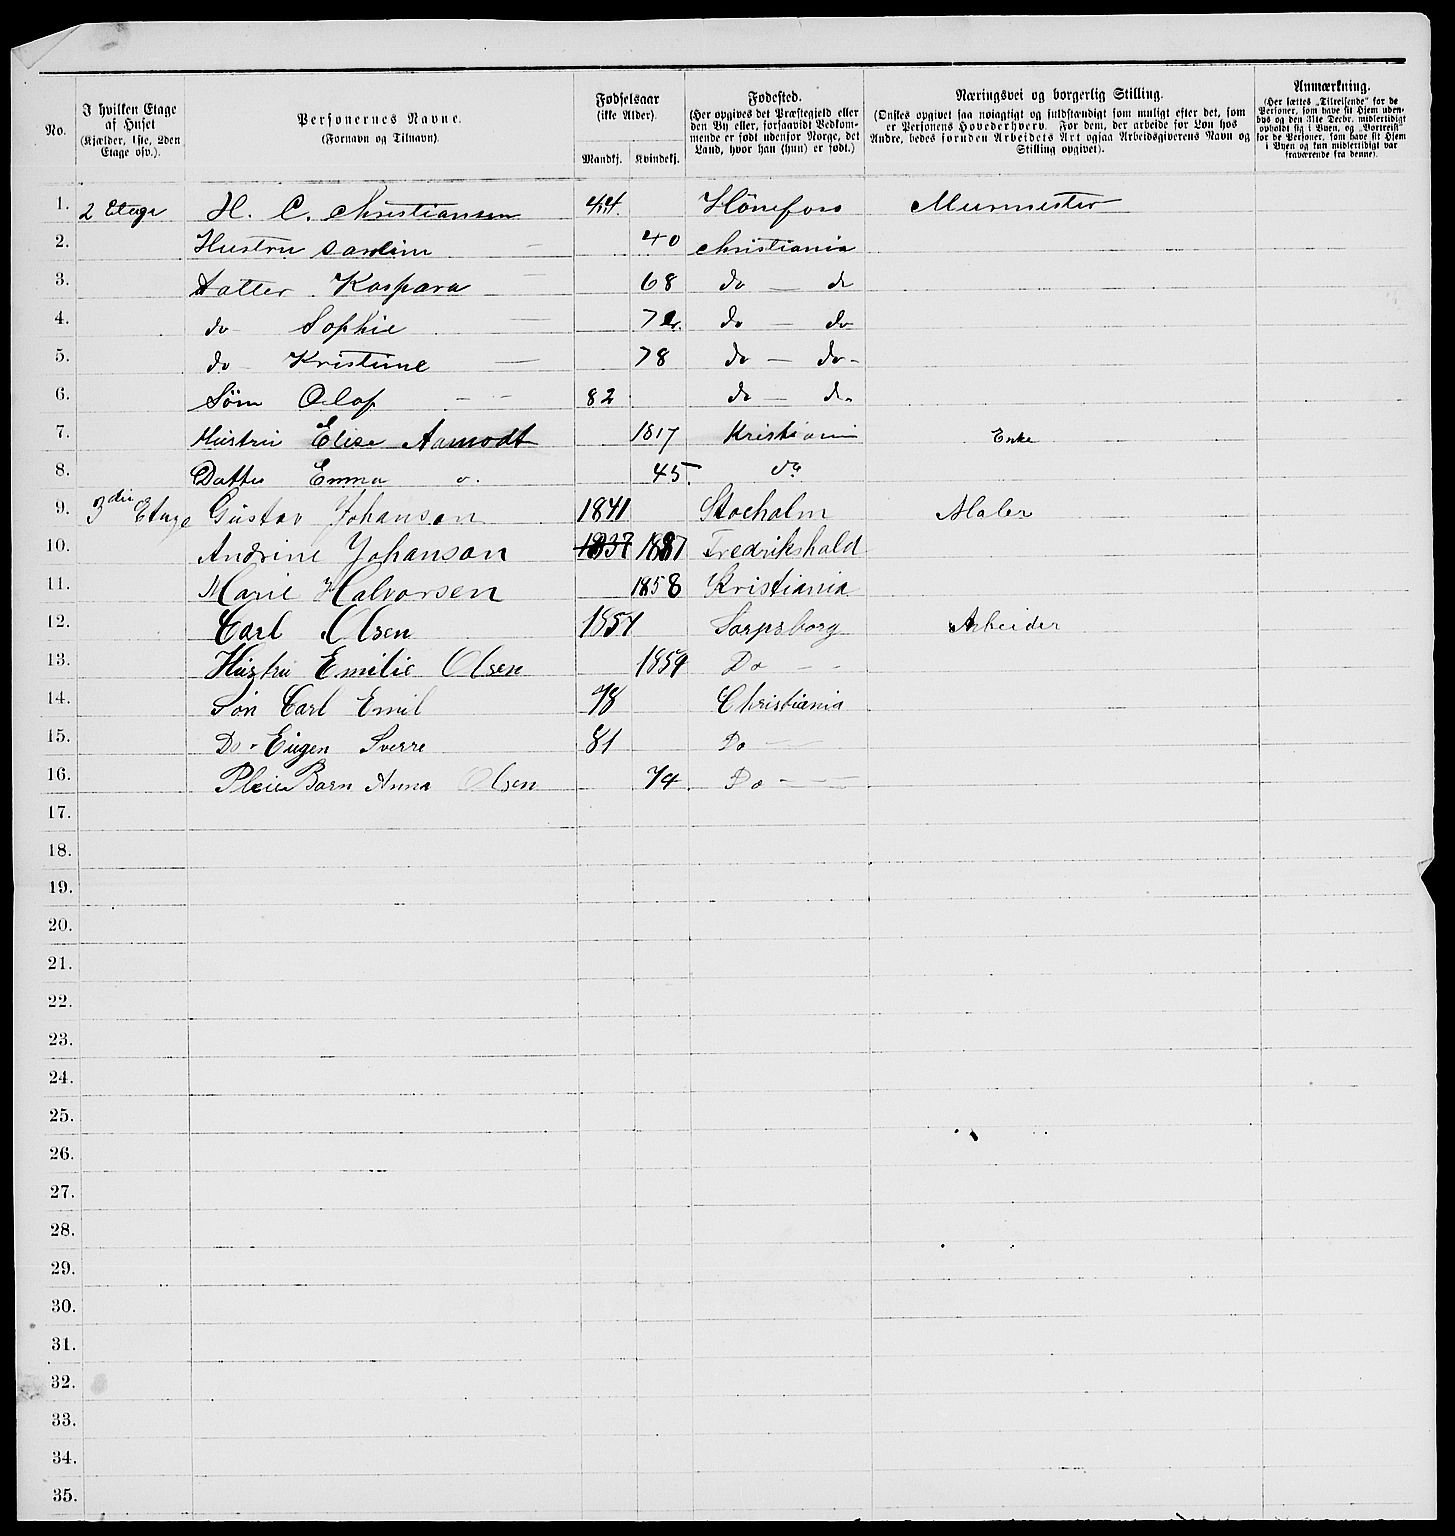 No.
I hvilken Etage af Huset (Kjælder, 1ste, 2den Etage osv.).
Personernes Navne. (Fornavn og Tilnavn).
Fødselsaar (ikke Alder).
Mandkj. Kvindekj.
Fødested. (Her opgives det Præstegjeld eller den By eller, forsaavidt Vedkommende er født udenfor Norge, det Land, hvor han (hun) er født.)
Næringsvei og borgerlig Stilling. (Ønskes opgivet saa nøiagtigt og fuldstændigt som muligt efter det, som er Personens Hovederhverv. For dem, der arbeide for Løn hos Andre, bedes foruden Arbeidets Art ogsaa Arbeidsgiverens Navn og Stilling opgivet).
Anmærkning. (Her sættes „Tilreisende“ for de Personer, som have sit Hjem udenbys og den 31te Decbr. midlertidigt opholdt sig i Byen, og „Bortreist“ for de Personer, som have sit Hjem i Byen og kun midlertidigt var fraværende fra denne).
1. 2 Etage H. C. Christiansen 44. Hönefoss Murmester
2. Hustru — 40 Christiania
3. Datter Kaspara — 68 do — do
4. do Sophie — do — do
5. do Kristine — 78 do — do
6. Søn Olaf — 82 do — do
7. Hustru Elise Aamodt 1817 Kristiania Enke
8. Datter Emma 45. do
9. 3die Etage Gustav Johanson 1841 Stocholm Maler
10. Andrine Johanson 1837 Fredrikshald
11. Marie Halvorsen 1858 Kristiania
12. Carl Olsen 1857 Sarpsborg Arbeider
13. Hustru Emilie Olsen 1859 Do — -
14. Søn Carl Emil 78 Christiania
15. Do - Eugen Sverre 81 Do —
16. Pleie Barn Anna Olsen 74 Do — — —
17.
18.
19.
20.
21.
22.
23.
24.
25.
26.
27.
28.
29.
30.
31.
32.
33.
34.
35.